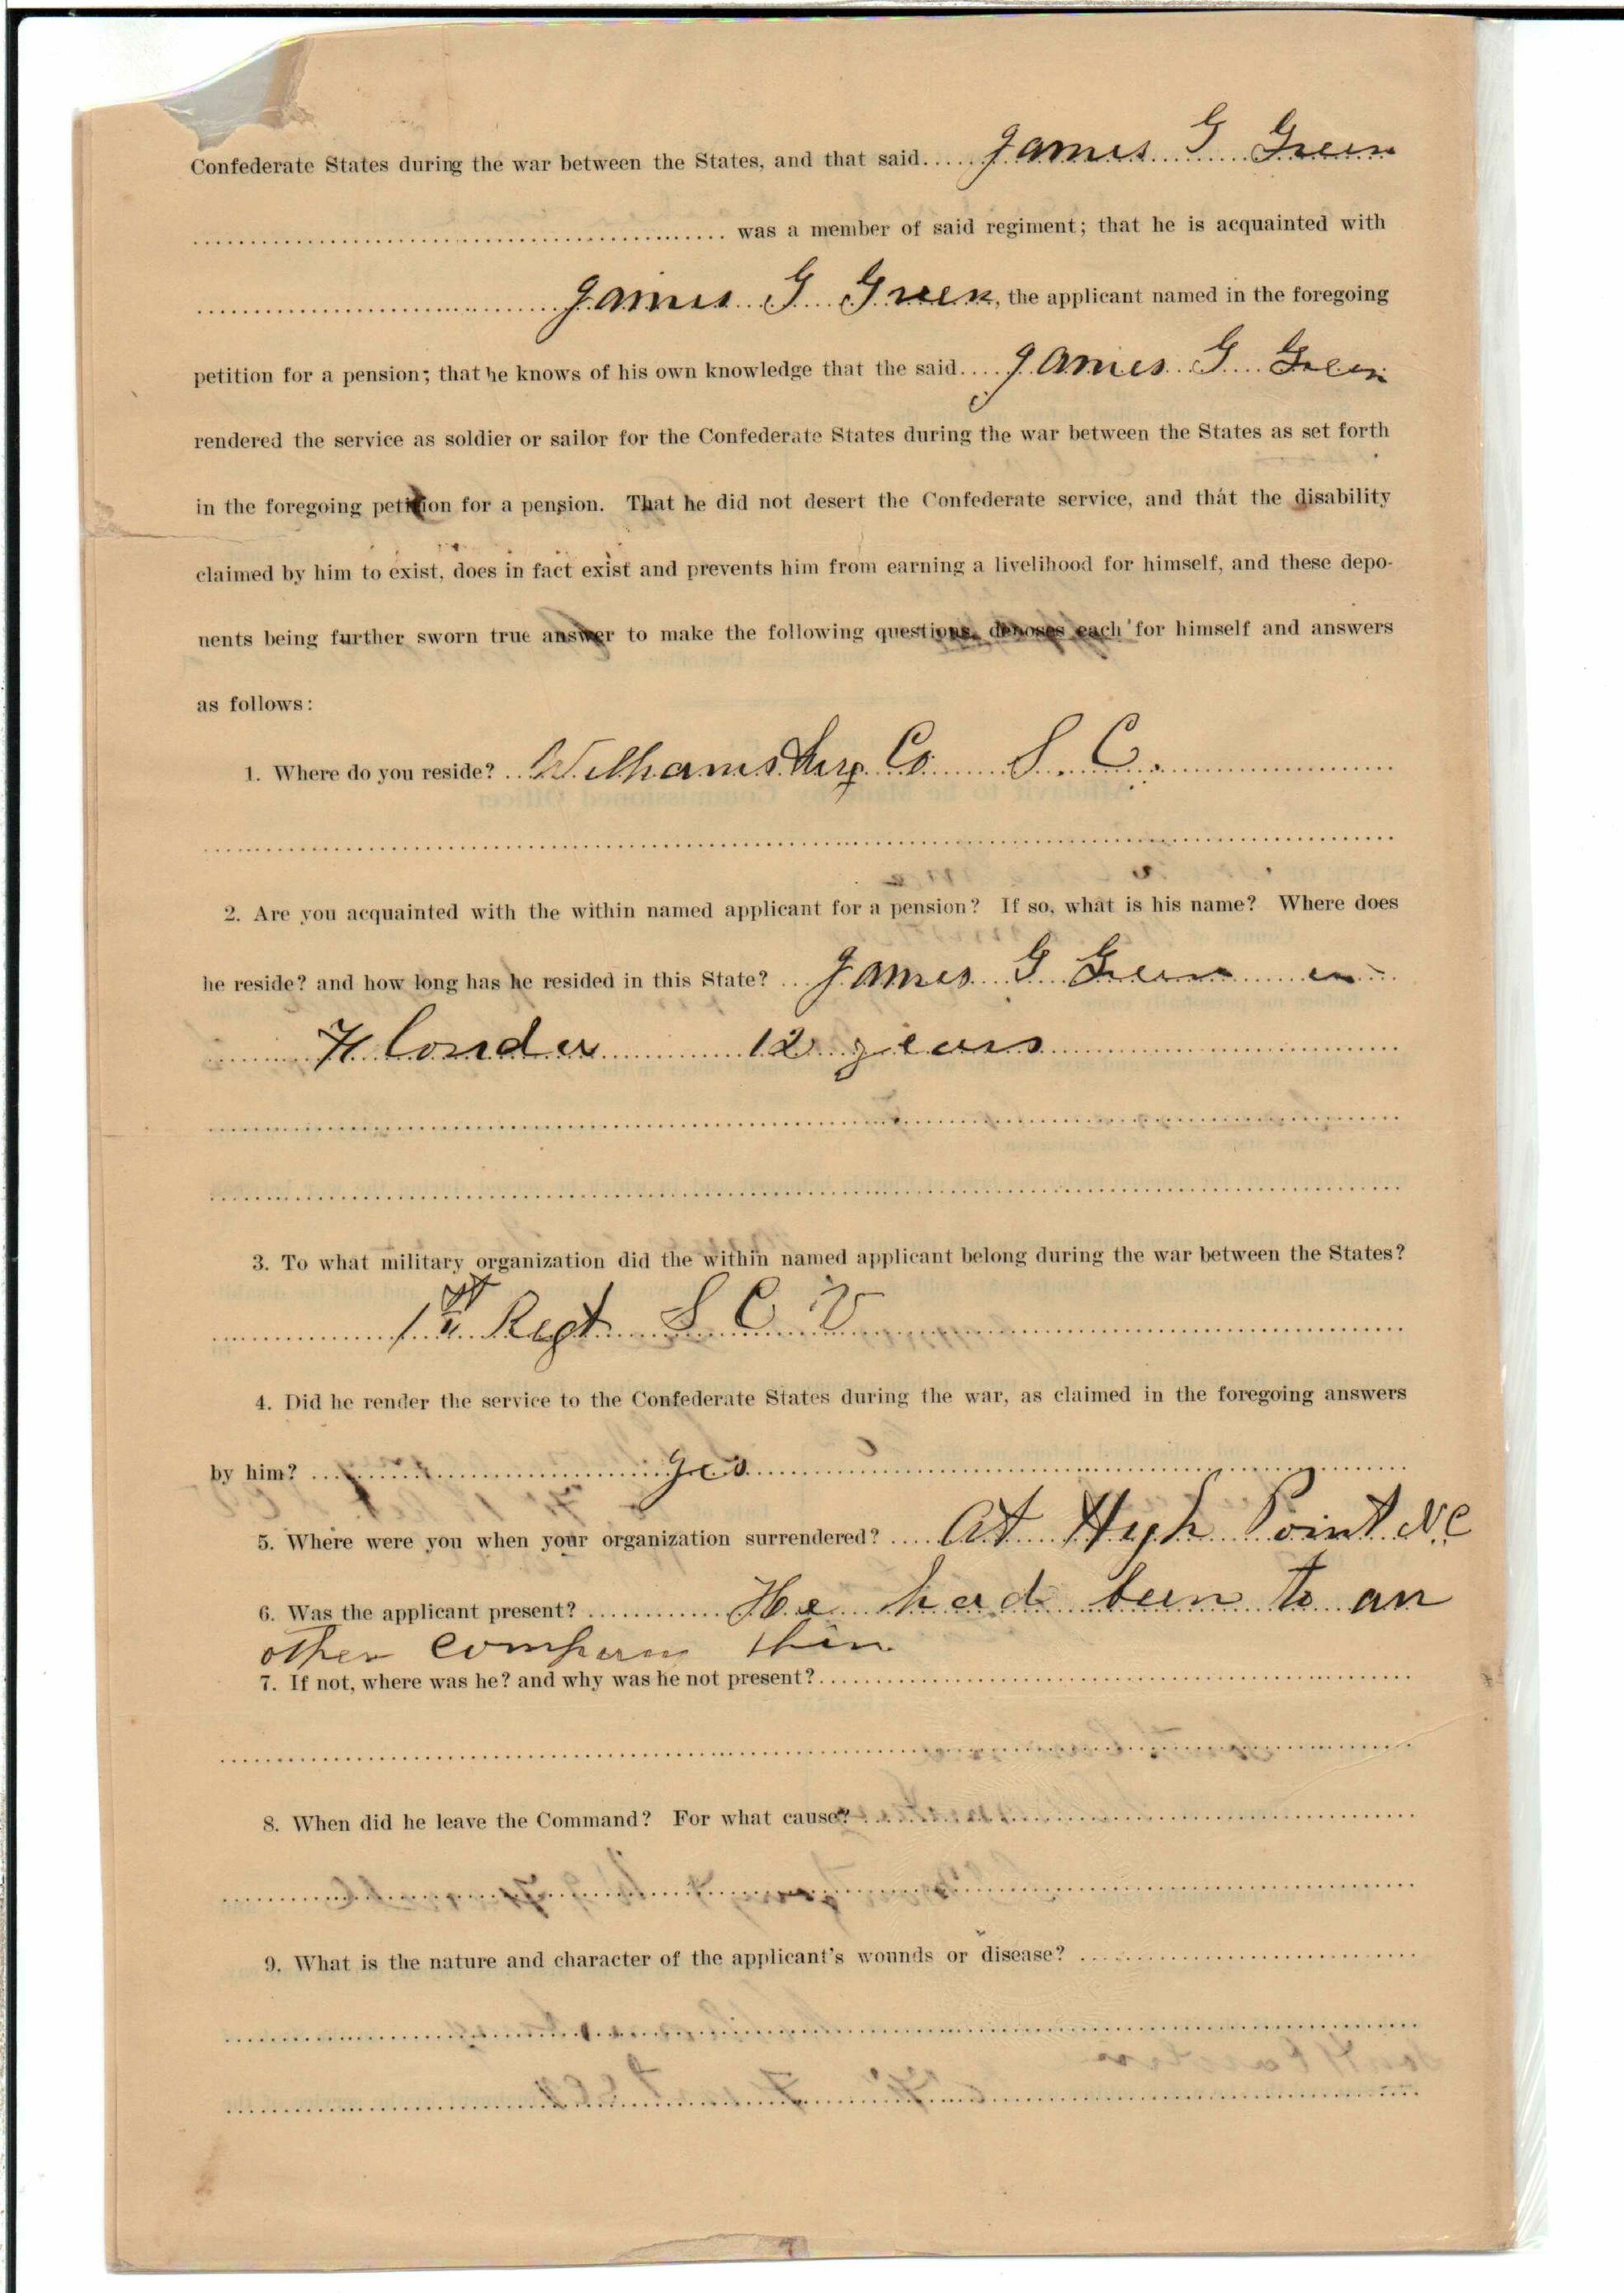 Confederate States during the war between the States, and that said..... James G Green
was a member of said regiment; that he is acquainted with
James G Green, the applicant named in the foregoing
petition for a pension; that he knows of his own knowledge that the said.... James G Green
rendered the service as soldier or sailor for the Confederate States during the war between the States as set forth
in the foregoing petition for a pension. That he did not desert the Confederate service, and that the disability
claimed by him to exist, does in fact exist and prevents him from earning a livelihood for himself, and these depo-
nents being further sworn true answer to make the following questions, deposes each for himself and answers
as follows:
1. Where do you reside? Williamsburg Co S. C.
2. Are you acquainted with the within named applicant for a pension? If so, what is his name? Where does
he reside? and how long has he resided in this State? James G Green in
Florida 12 years
3. To what military organization did the within named applicant belong during the war between the States?
1st Regt S C V
4. Did he render the service to the Confederate States during the war, as claimed in the foregoing answers
by him? yes
5. Where were you when your organization surrendered? At High Point N.C
6. Was the applicant present? He had been to an
other company then
7. If not, where was he? and why was he not present?
8. When did he leave the Command? For what cause?
9. What is the nature and character of the applicant's wounds or disease?